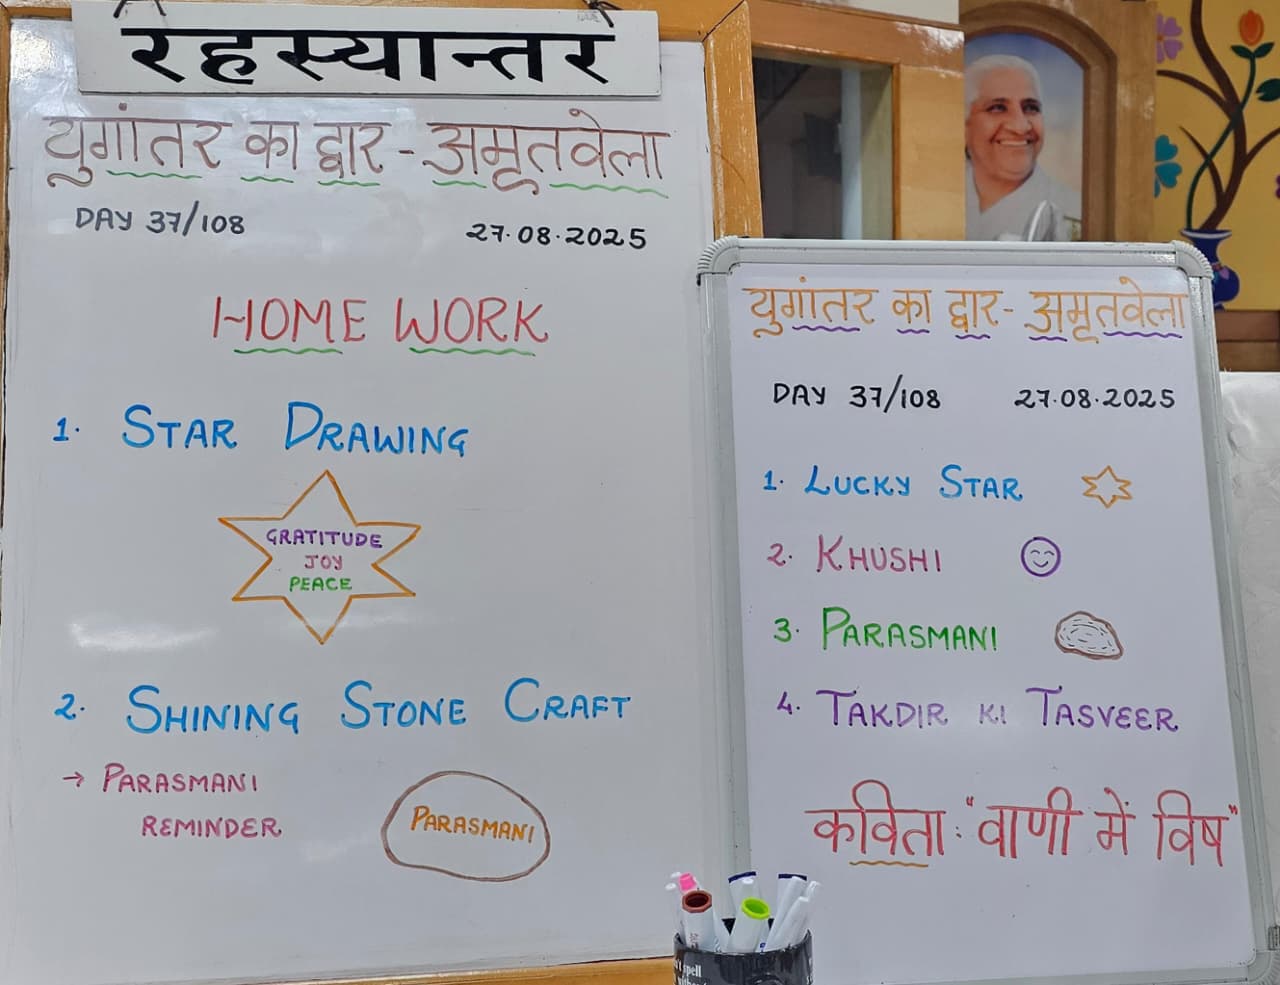 रहस्यान्तर
युगांतर का द्वार - अमृतवेला
DAY 37/108
27.08.2025
HOME WORK
1. STAR DRAWING
GRATITUDE
JOY
PEACE
2. SHINING STONE CRAFT
→ PARASMANI
REMINDER
PARASMANI
युगांतर का द्वार - अमृतवेला
DAY 37/108
27.08.2025
1. LUCKY STAR
2. KHUSHI
3. PARASMANI
4. TAKDIR KI TASVEER
कविता: "वाणी में विष"
spell